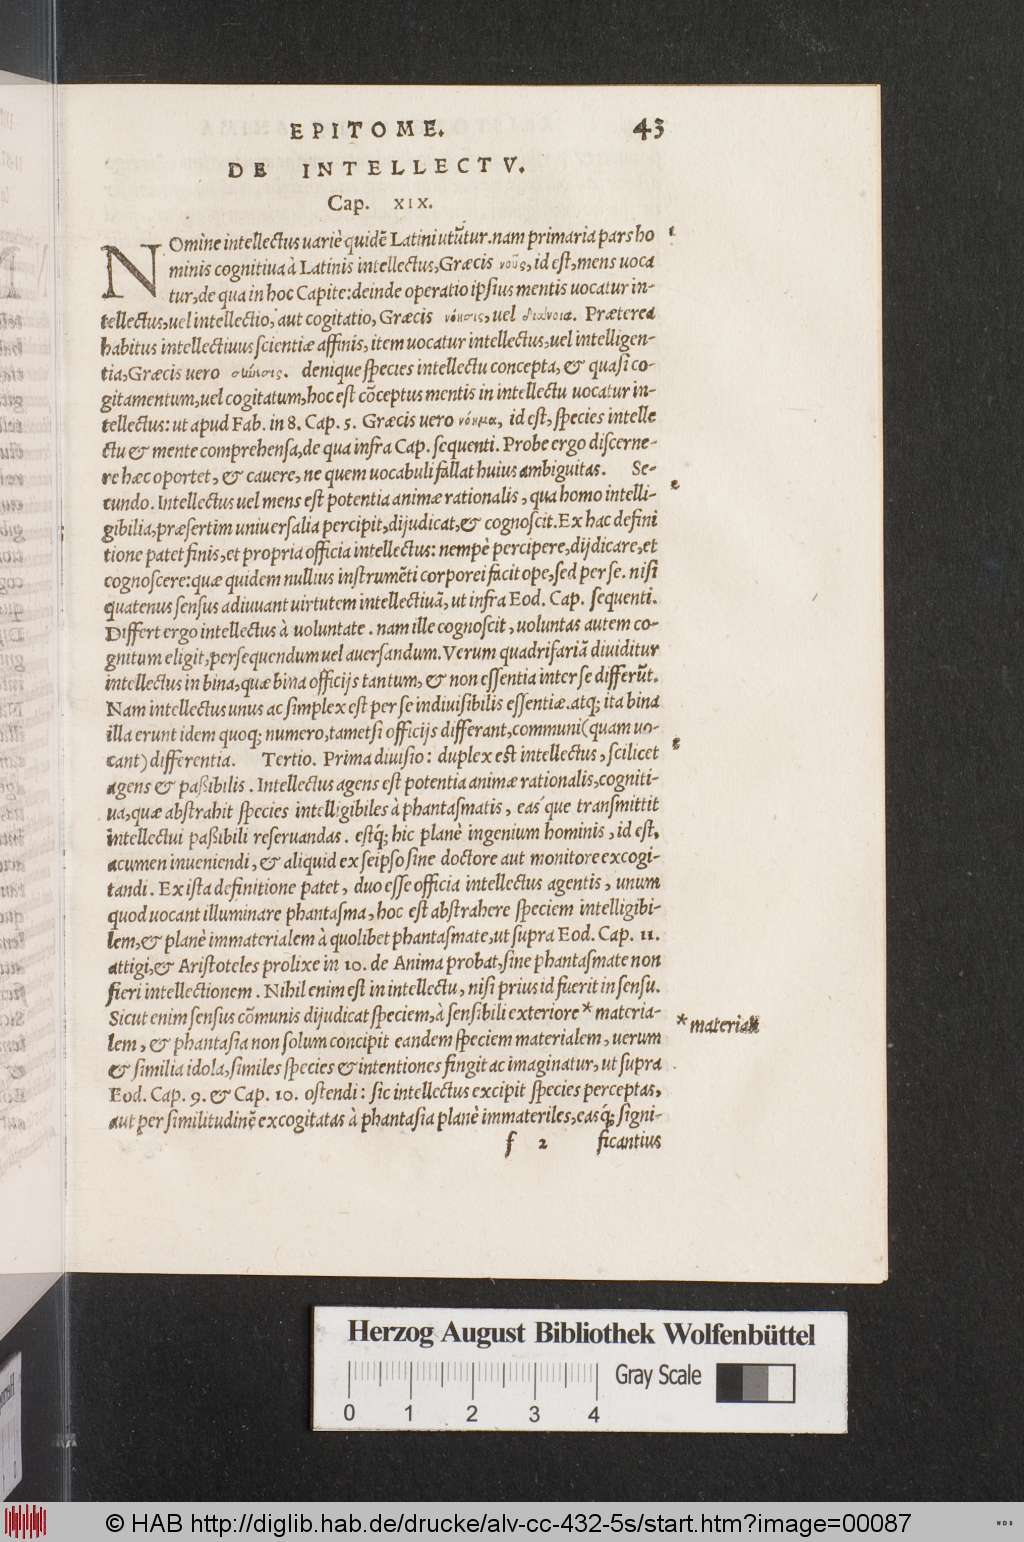 EPITOME. 43
DE INTELLECTV.
Cap. XIX.
NOmine intellectus uariè quidẽ Latini utũtur. nam primaria pars ho 1
minis cognitiua à Latinis intellectus, Græcis νοῦς, id est, mens uoca
tur, de qua in hoc Capite: deinde operatio ipsius mentis uocatur in-
tellectus, uel intellectio, aut cogitatio, Græcis νόησις, uel διάνοια. Præterea
habitus intellectiuus scientiæ affinis, item uocatur intellectus, uel intelligen-
tia, Græcis uero σύνεσις. denique species intellectu concepta, & quasi co-
gitamentum, uel cogitatum, hoc est cõceptus mentis in intellectu uocatur in-
tellectus: ut apud Fab. in 8. Cap. 5. Græcis uero νόημα, id est, species intelle
ctu & mente comprehensa, de qua infra Cap. sequenti. Probe ergo discerne-
re hæc oportet, & cauere, ne quem uocabuli fallat huius ambiguitas. Se- 2
cundo. Intellectus uel mens est potentia animæ rationalis, qua homo intelli-
gibilia, præsertim uniuersalia percipit, dijudicat, & cognoscit. Ex hac defini
tione patet finis, et propria officia intellectus: nempè percipere, dijdicare, et
cognoscere: quæ quidem nullius instrumẽti corporei facit ope, sed per se. nisi
quatenus sensus adiuuant uirtutem intellectiuã, ut infra Eod. Cap. sequenti.
Differt ergo intellectus à uoluntate. nam ille cognoscit, uoluntas autem co-
gnitum eligit, persequendum uel auersandum. Verum quadrifariã diuiditur
intellectus in bina, quæ bina officijs tantum, & non essentia inter se differũt.
Nam intellectus unus ac simplex est per se indiuisibilis essentiæ. atq; ita bina
illa erunt idem quoq; numero, tametsi officijs differant, communi (quam uo-
cant) differentia. Tertio. Prima diuisio: duplex est intellectus, scilicet 3
agens & paßibilis. Intellectus agens est potentia animæ rationalis, cogniti-
ua, quæ abstrahit species intelligibiles à phantasmatis, eas´que transmittit
intellectui paßibili reseruandas. estq; hic planè ingenium hominis, id est,
acumen inueniendi, & aliquid ex seipso sine doctore aut monitore excogi-
tandi. Ex ista definitione patet, duo esse officia intellectus agentis, unum
quod uocant illuminare phantasma, hoc est abstrahere speciem intelligibi-
lem, & planè immaterialem à quolibet phantasmate, ut supra Eod. Cap. 11.
attigi, & Aristoteles prolixe in 10. de Anima probat, sine phantasmate non
fieri intellectionem. Nihil enim est in intellectu, nisi prius id fuerit in sensu.
Sicut enim sensus cõmunis dijudicat speciem, à sensibili exteriore * materia- * material
lem, & phantasia non solum concipit eandem speciem materialem, uerum
& similia idola, similes species & intentiones fingit ac imaginatur, ut supra
Eod. Cap. 9. & Cap. 10. ostendi: sic intellectus excipit species perceptas,
aut per similitudinẽ excogitatas à phantasia planè immateriles, easq; signi-
f 2 ficantius
Herzog August Bibliothek Wolfenbüttel
Gray Scale
0 1 2 3 4
© HAB http://diglib.hab.de/drucke/alv-cc-432-5s/start.htm?image=00087